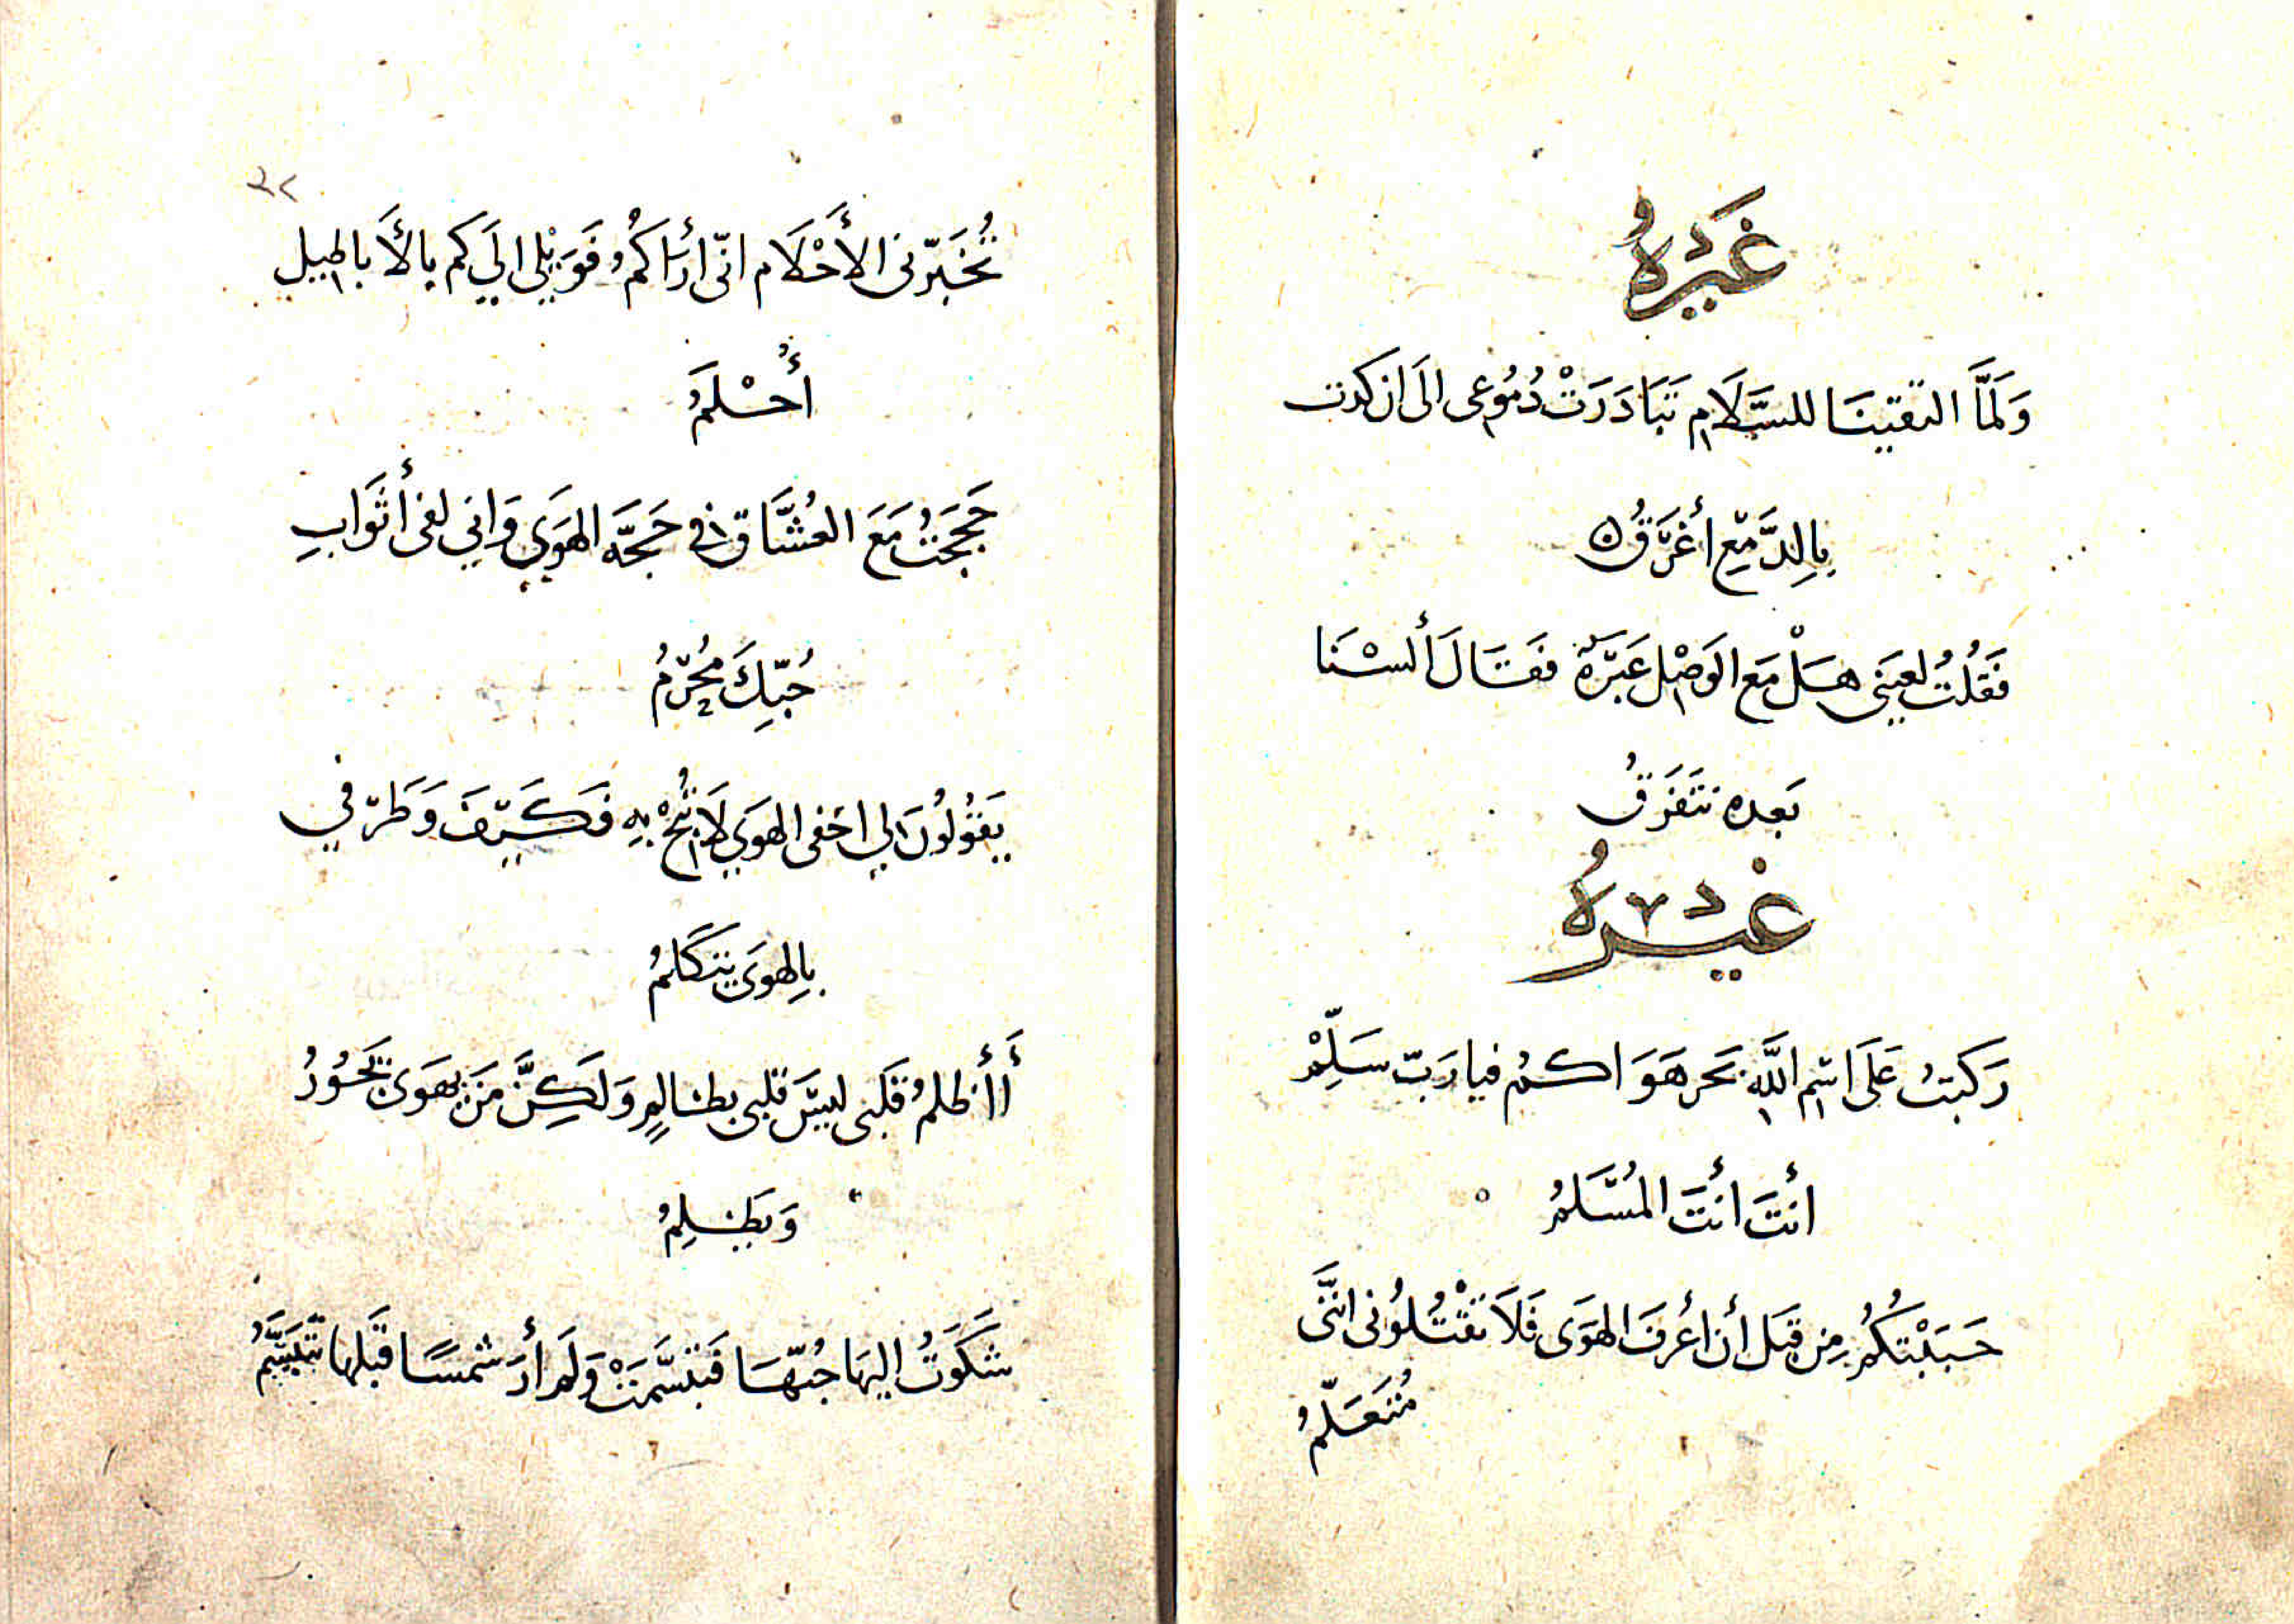 غَيْرُهُ
وَلَمَّا التقَينَا للسَّلَامِ تَبَادَرَتْ دُمُوعِى الَى ان كدت
بِالِدَّمْعِ أغْرَقُ
فَقُلتُ لعَينى هَلْ مَع الوَصْلِ عَبْرَةٌ فقَالَ ألسْنَا
بَعده نتَفَرقُ
غيْرُهُ
رَكَبتُ عَلَى اسْمِ اللَّهِ بَحر هَوَاكمُ فيارَبّ سَلِّمْ
أنتَ أنتَ المُسَّلمُ
حَبَبْتكُمُ مِن قبَل أن اعُرفَ الهَوَى فَلَا تقْتُلوُنى انَّنى
مُتَعَلّمُ
٣٢
تُخَبّرنى الأَحْلَام انّى أرَاكمُ فَوَيْلى الَي كم بالأَبَاطيل
أُحْلَمُ
حَججتُ مَعَ العُشَّاقِ في حَجَّه الهَوَي وَاني لفى أثَوابِ
حُبّكَ مُحْرمُ
يَقوُلُونَ لي اخفى الهوَي لَا تُبحْ بهِ فَكَيّفَ وَطَرّفي
بِالهوَى يتَكَلمُ
أَأَظلمُ قَلَبى ليسَ قلبى بظالمٍ وَلَكِنَّ مَن يهَوَى يَجُورُ
وَيَظلِمُ
شَكَوَتُ اليهَا حُبّهَا فَتبسَّمَتْ وَلَم أرَ شمسًا قَبَلها تَتَبَسَّمُ